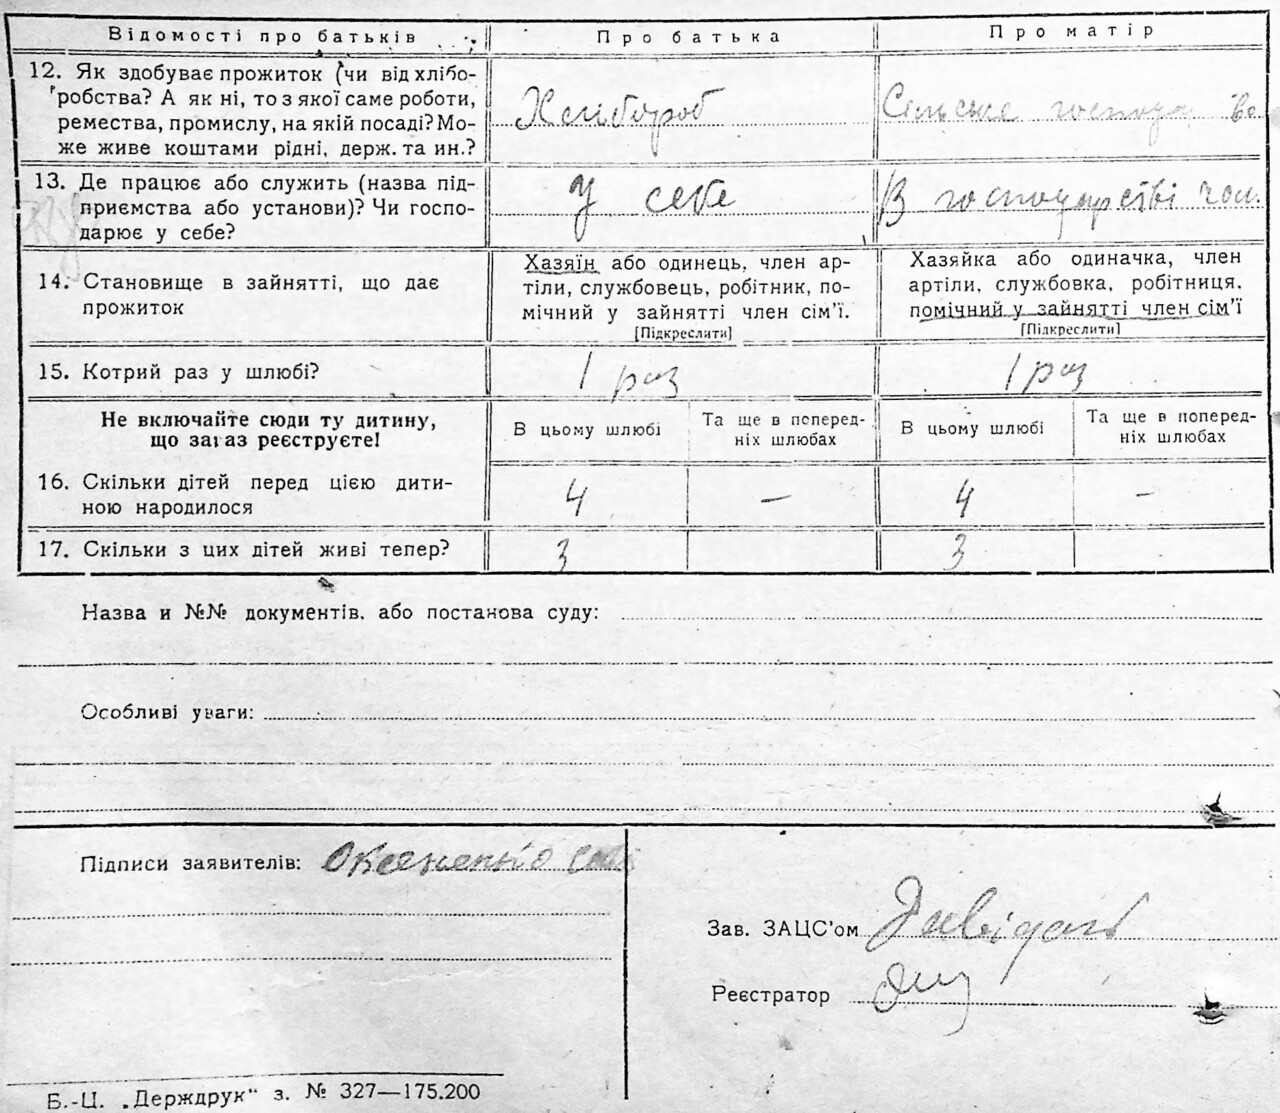 Відомості про батьків
Про батька
Про матір
12. Як здобуває прожиток (чи від хлібо-
робства? А як ні, то з якої саме роботи,
ремества, промислу, на якій посаді? Мо-
же живе коштами рідні, держ. та ин.?
Хлибороб
Сільське
13. Де працює або служить (назва під-
приємства або установи)? Чи госпо-
дарює у себе?
У себе
В господарстві чол.
14. Становище в зайнятті, що дає
прожиток
Хазяїн або одинець, член ар-
тіли, службовець, робітник, по-
мічний у зайнятті член сім'ї.
[Підкреслити]
Хазяйка або одиначка, член
артіли, службовка, робітниця.
помічний у зайнятті член сім'ї
[Підкреслити]
15. Котрий раз у шлюбі?
1 раз
1 раз
Не включайте сюди ту дитину,
що зараз реєструєте!
В цьому шлюбі
Та ще в поперед-
ніх шлюбах
В цьому шлюбі
Та ще в поперед-
ніх шлюбах
16. Скільки дітей перед цією дити-
ною народилося
4
—
4
—
17. Скільки з цих дітей живі тепер?
3
3
Назва и №№ документів, або постанова суду:
Особливі уваги:
Підписи заявителів:
Зав. ЗАЦС'ом
Реєстратор
Б.-Ц. „Держдрук" з. № 327—175.200